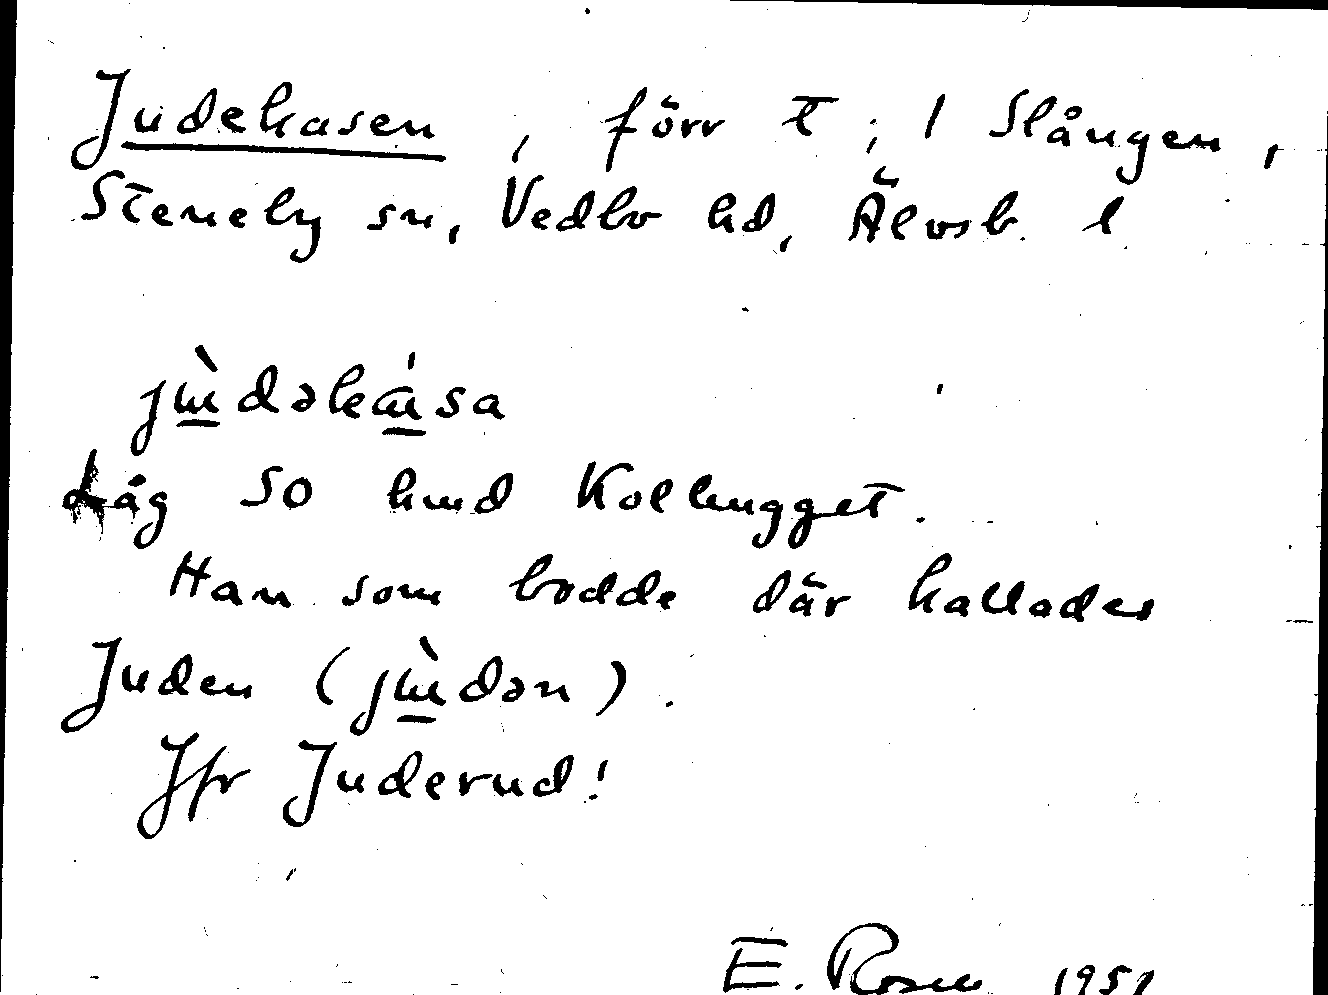 Judekasen, förr t; 1 Slången,
Steneby sn, Vedbo hd, Älvsb. l
Låg SO hmd Kolhugget.
Han som bodde där kallades
Juden (jɯ̀dən).
Jfr Juderud!
E. Rosen 1951